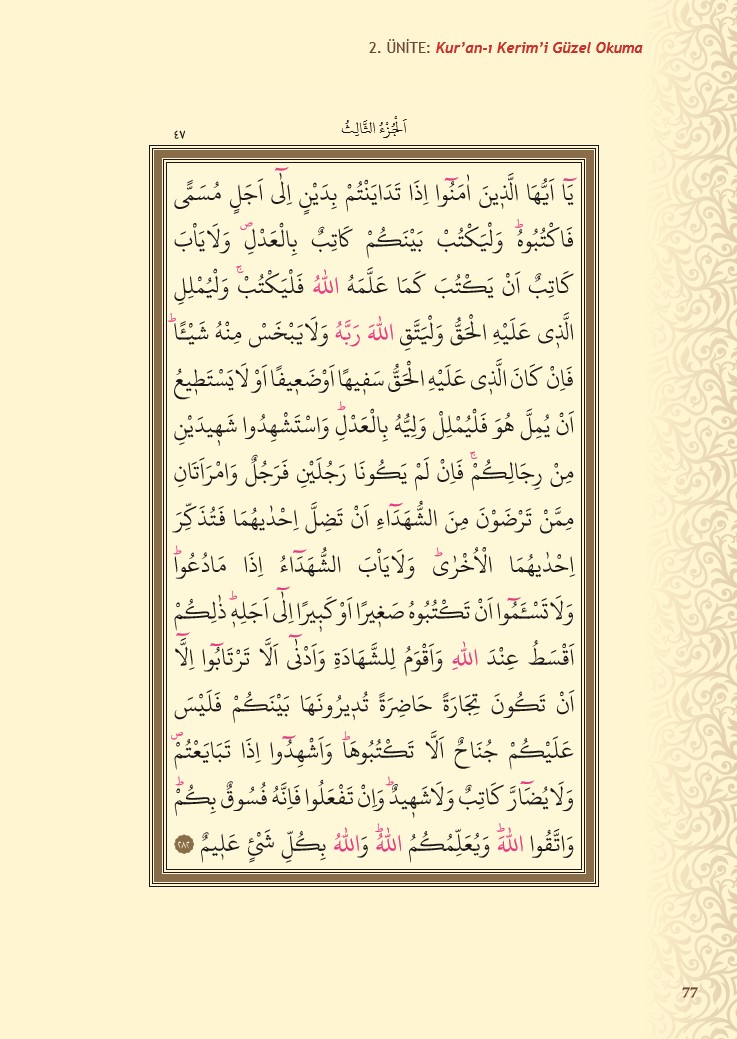 2. ÜNİTE: Kur’an-ı Kerim’i Güzel Okuma
اَلْجُزْءُ الثَّالِثُ
٤٧
يَٓا اَيُّهَا الَّذ۪ينَ اٰمَنُٓوا اِذَا تَدَايَنْتُمْ بِدَيْنٍ اِلٰٓى اَجَلٍ مُسَمًّى
فَاكْتُبُوهُۜ وَلْيَكْتُبْ بَيْنَكُمْ كَاتِبٌ بِالْعَدْلِۖ وَلَا يَاْبَ
كَاتِبٌ اَنْ يَكْتُبَ كَمَا عَلَّمَهُ اللّٰهُ فَلْيَكْتُبْۚ وَلْيُمْلِلِ
الَّذ۪ي عَلَيْهِ الْحَقُّ وَلْيَتَّقِ اللّٰهَ رَبَّهُ وَلَا يَبْخَسْ مِنْهُ شَيْـًٔاۜ
فَاِنْ كَانَ الَّذ۪ي عَلَيْهِ الْحَقُّ سَف۪يهًا اَوْ ضَع۪يفًا اَوْ لَا يَسْتَط۪يعُ
اَنْ يُمِلَّ هُوَ فَلْيُمْلِلْ وَلِيُّهُ بِالْعَدْلِۜ وَاسْتَشْهِدُوا شَه۪يدَيْنِ
مِنْ رِجَالِكُمْۚ فَاِنْ لَمْ يَكُونَا رَجُلَيْنِ فَرَجُلٌ وَامْرَاَتَانِ
مِمَّنْ تَرْضَوْنَ مِنَ الشُّهَدَٓاءِ اَنْ تَضِلَّ اِحْدٰيهُمَا فَتُذَكِّرَ
اِحْدٰيهُمَا الْاُخْرٰىۜ وَلَا يَاْبَ الشُّهَدَٓاءُ اِذَا مَا دُعُواۜ
وَلَا تَسْـَٔمُٓوا اَنْ تَكْتُبُوهُ صَغ۪يرًا اَوْ كَب۪يرًا اِلٰٓى اَجَلِه۪ۜ ذٰلِكُمْ
اَقْسَطُ عِنْدَ اللّٰهِ وَاَقْوَمُ لِلشَّهَادَةِ وَاَدْنٰٓى اَلَّا تَرْتَابُٓوا اِلَّٓا
اَنْ تَكُونَ تِجَارَةً حَاضِرَةً تُد۪يرُونَهَا بَيْنَكُمْ فَلَيْسَ
عَلَيْكُمْ جُنَاحٌ اَلَّا تَكْتُبُوهَاۜ وَاَشْهِدُٓوا اِذَا تَبَايَعْتُمْۖ
وَلَا يُضَٓارَّ كَاتِبٌ وَلَا شَه۪يدٌۜ وَاِنْ تَفْعَلُوا فَاِنَّهُ فُسُوقٌ بِكُمْۜ
وَاتَّقُوا اللّٰهَۜ وَيُعَلِّمُكُمُ اللّٰهُۜ وَاللّٰهُ بِكُلِّ شَيْءٍ عَل۪يمٌ ٢٨٢
77